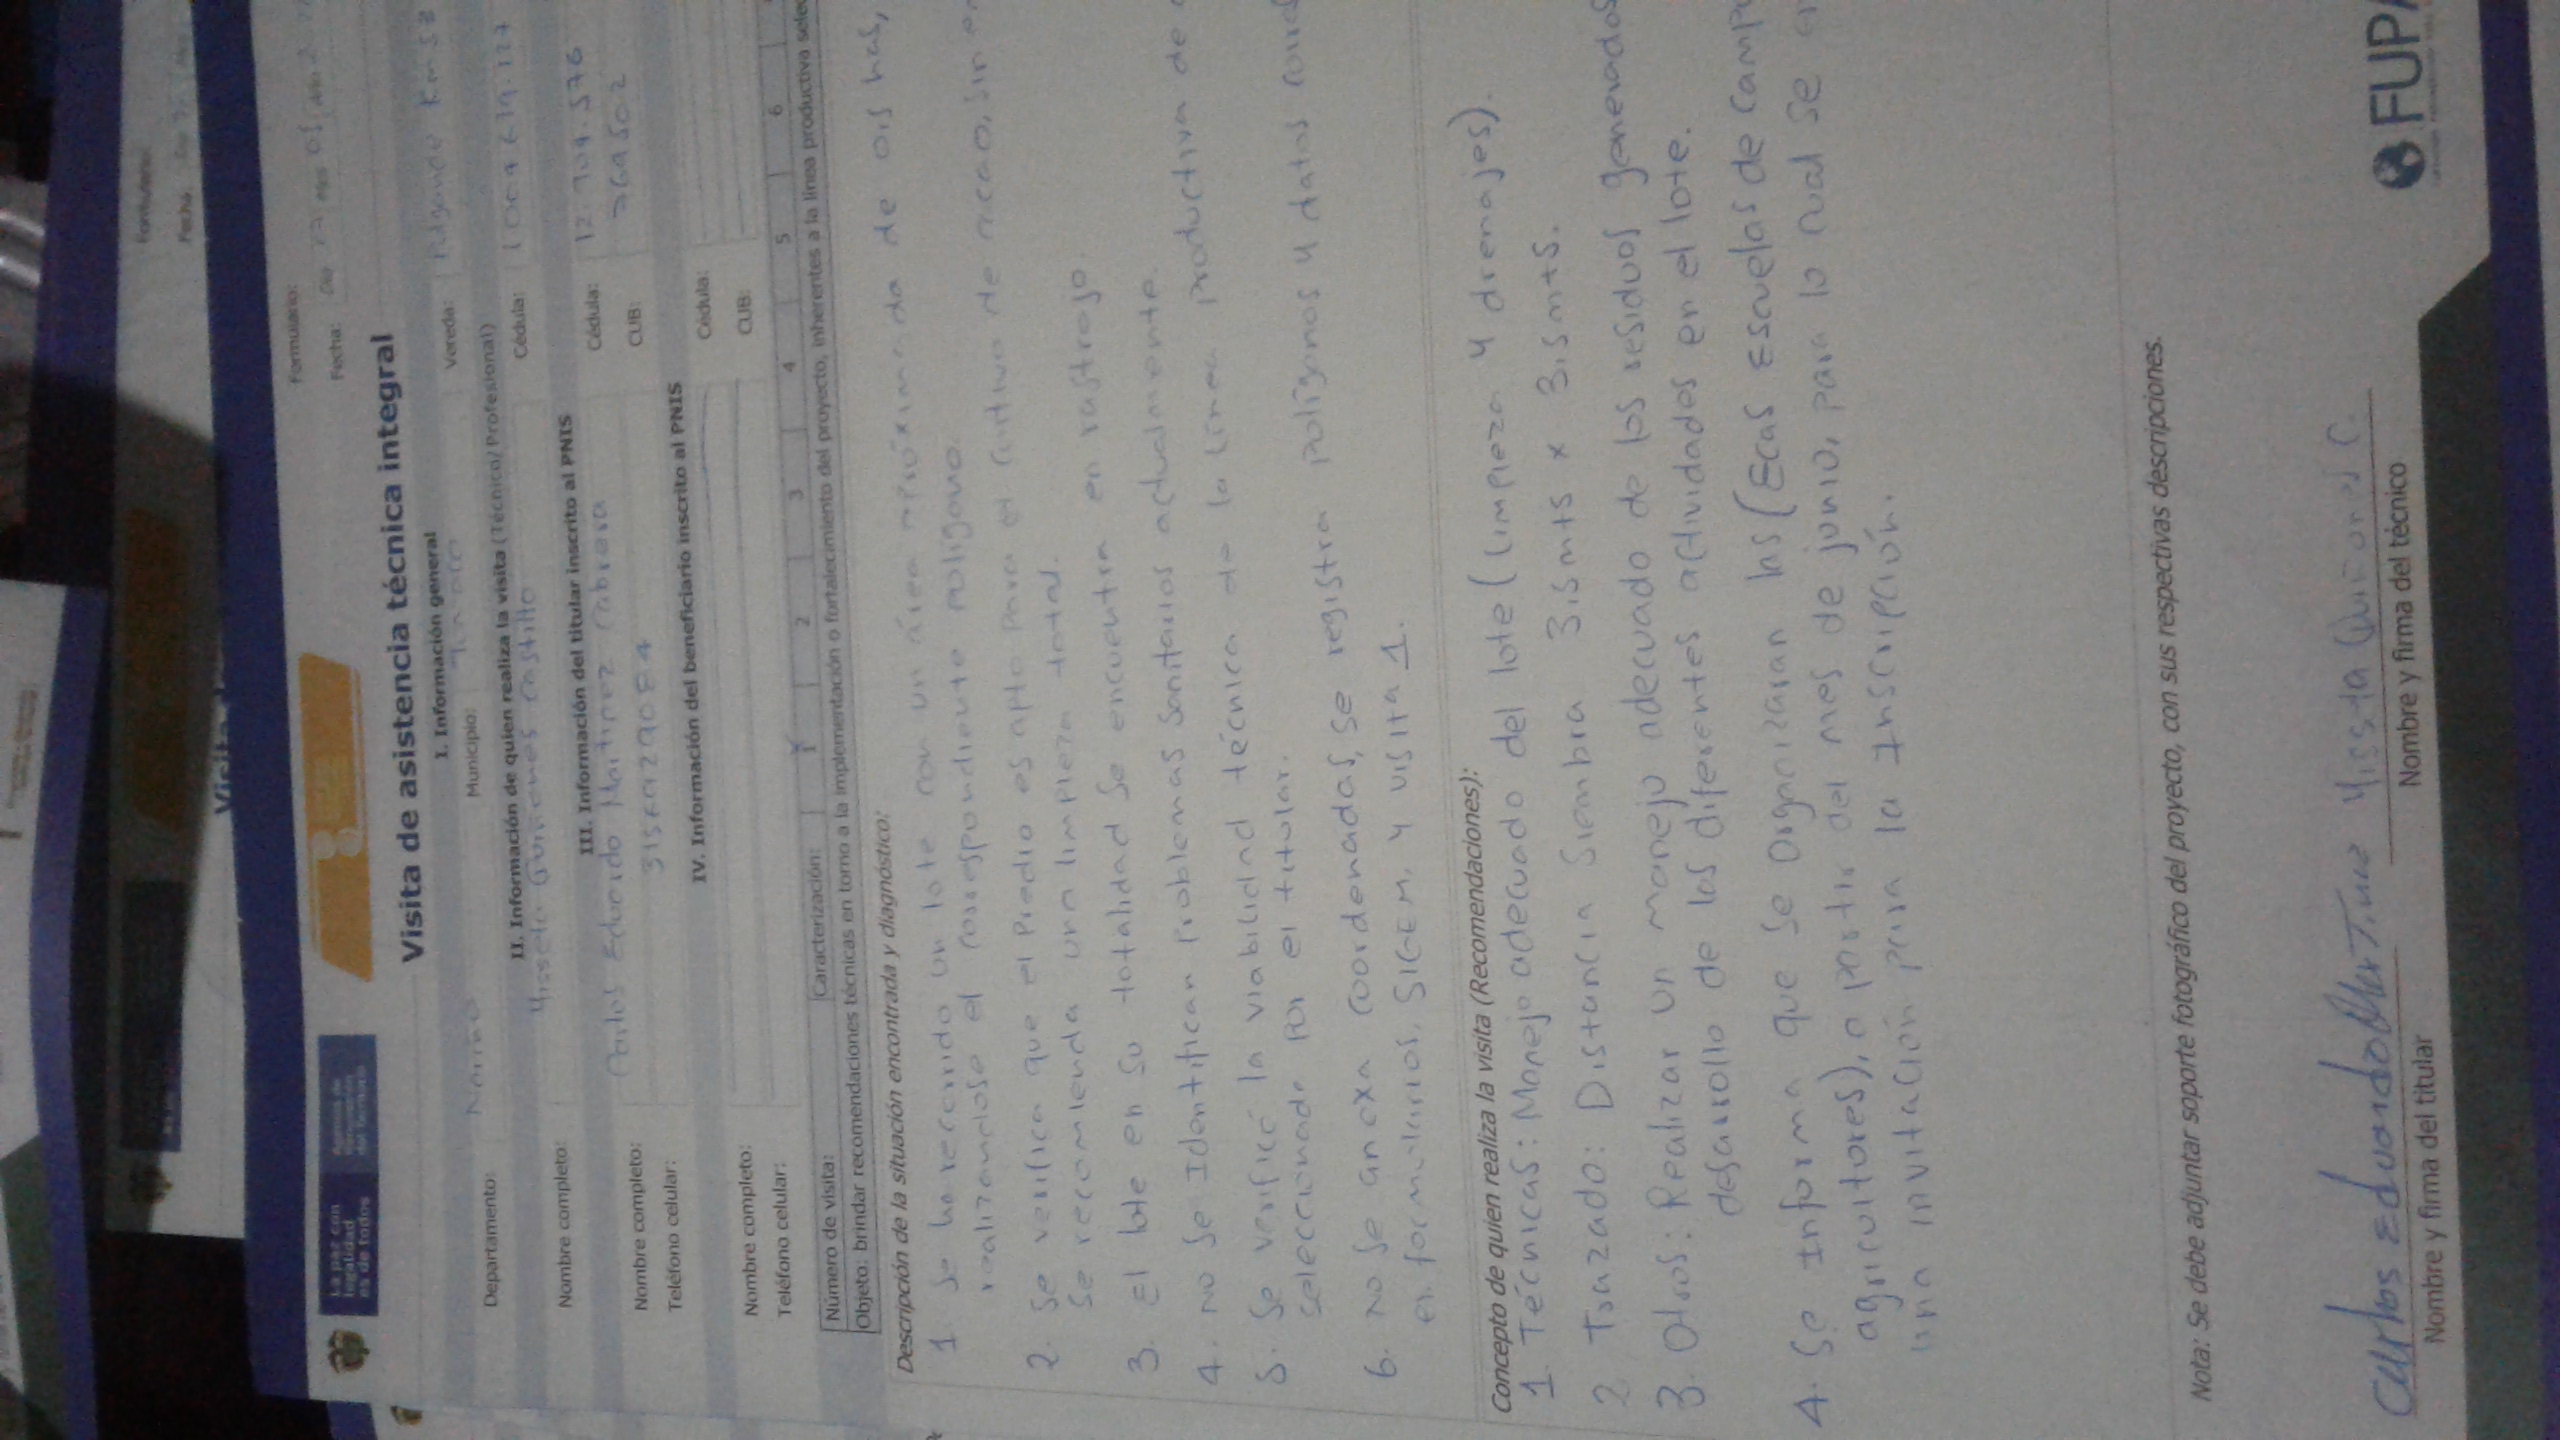 La paz con
legalidad
es de todos
Formulario:
Fecha:
Visita de asistencia técnica integral
I. Información general
Departamento: Nariño Municipio: Tumaco Vereda: Km 58
II. Información de quien realiza la visita (Técnico/Profesional)
Nombre completo: Yisseta Quiñones Castillo Cédula:
III. Información del titular inscrito al PNIS
Nombre completo: Carlos Eduardo Martinez Cabrera Cédula: 12.904.576
Teléfono celular: CUB:
IV. Información del beneficiario inscrito al PNIS
Nombre completo: Cédula:
Teléfono celular: CUB:
Número de visita: Caracterización: 1 X 2 3 4 5 6
Objeto: brindar recomendaciones técnicas en torno a la implementación o fortalecimiento del proyecto, inherentes a la línea productiva
Descripción de la situación encontrada y diagnóstico:
1. Se ha recorrido un lote con un área aproximada de 0,5 has,
realizandose el correspondiente poligono.
2. Se verifica que el Predio es apto para el cultivo de cacao, sin
se recomienda una limpieza total.
3. El lote en su totalidad se encuentra en rastrojo.
4. No se Identifican Problemas Sanitarios actualmente.
5. Se verificó la viabilidad técnica de la Línea productiva de
seleccionado por el titular.
6. No se anexa coordenadas, se registra polígonos y datos
en formularios, SIGEM, y visita 1.
Concepto de quien realiza la visita (Recomendaciones):
1. Técnicas: Manejo adecuado del lote (Limpieza y drenajes).
2. Trazado: Distancia Siembra 3,5 mts x 3,5 mts.
3. Otros: Realizar un manejo adecuado de los residuos generados
desarrollo de las diferentes actividades en el lote.
4. Se Informa que se organizaran las (Ecas Escuelas de Campo
agricultores), a partir del mes de junio, para lo cual se
una invitación para la Inscripción.
Nota: Se debe adjuntar soporte fotográfico del proyecto, con sus respectivas descripciones.
Carlos Eduardo Martinez Yisseta Quiñones C.
Nombre y firma del titular Nombre y firma del técnico
FUPA